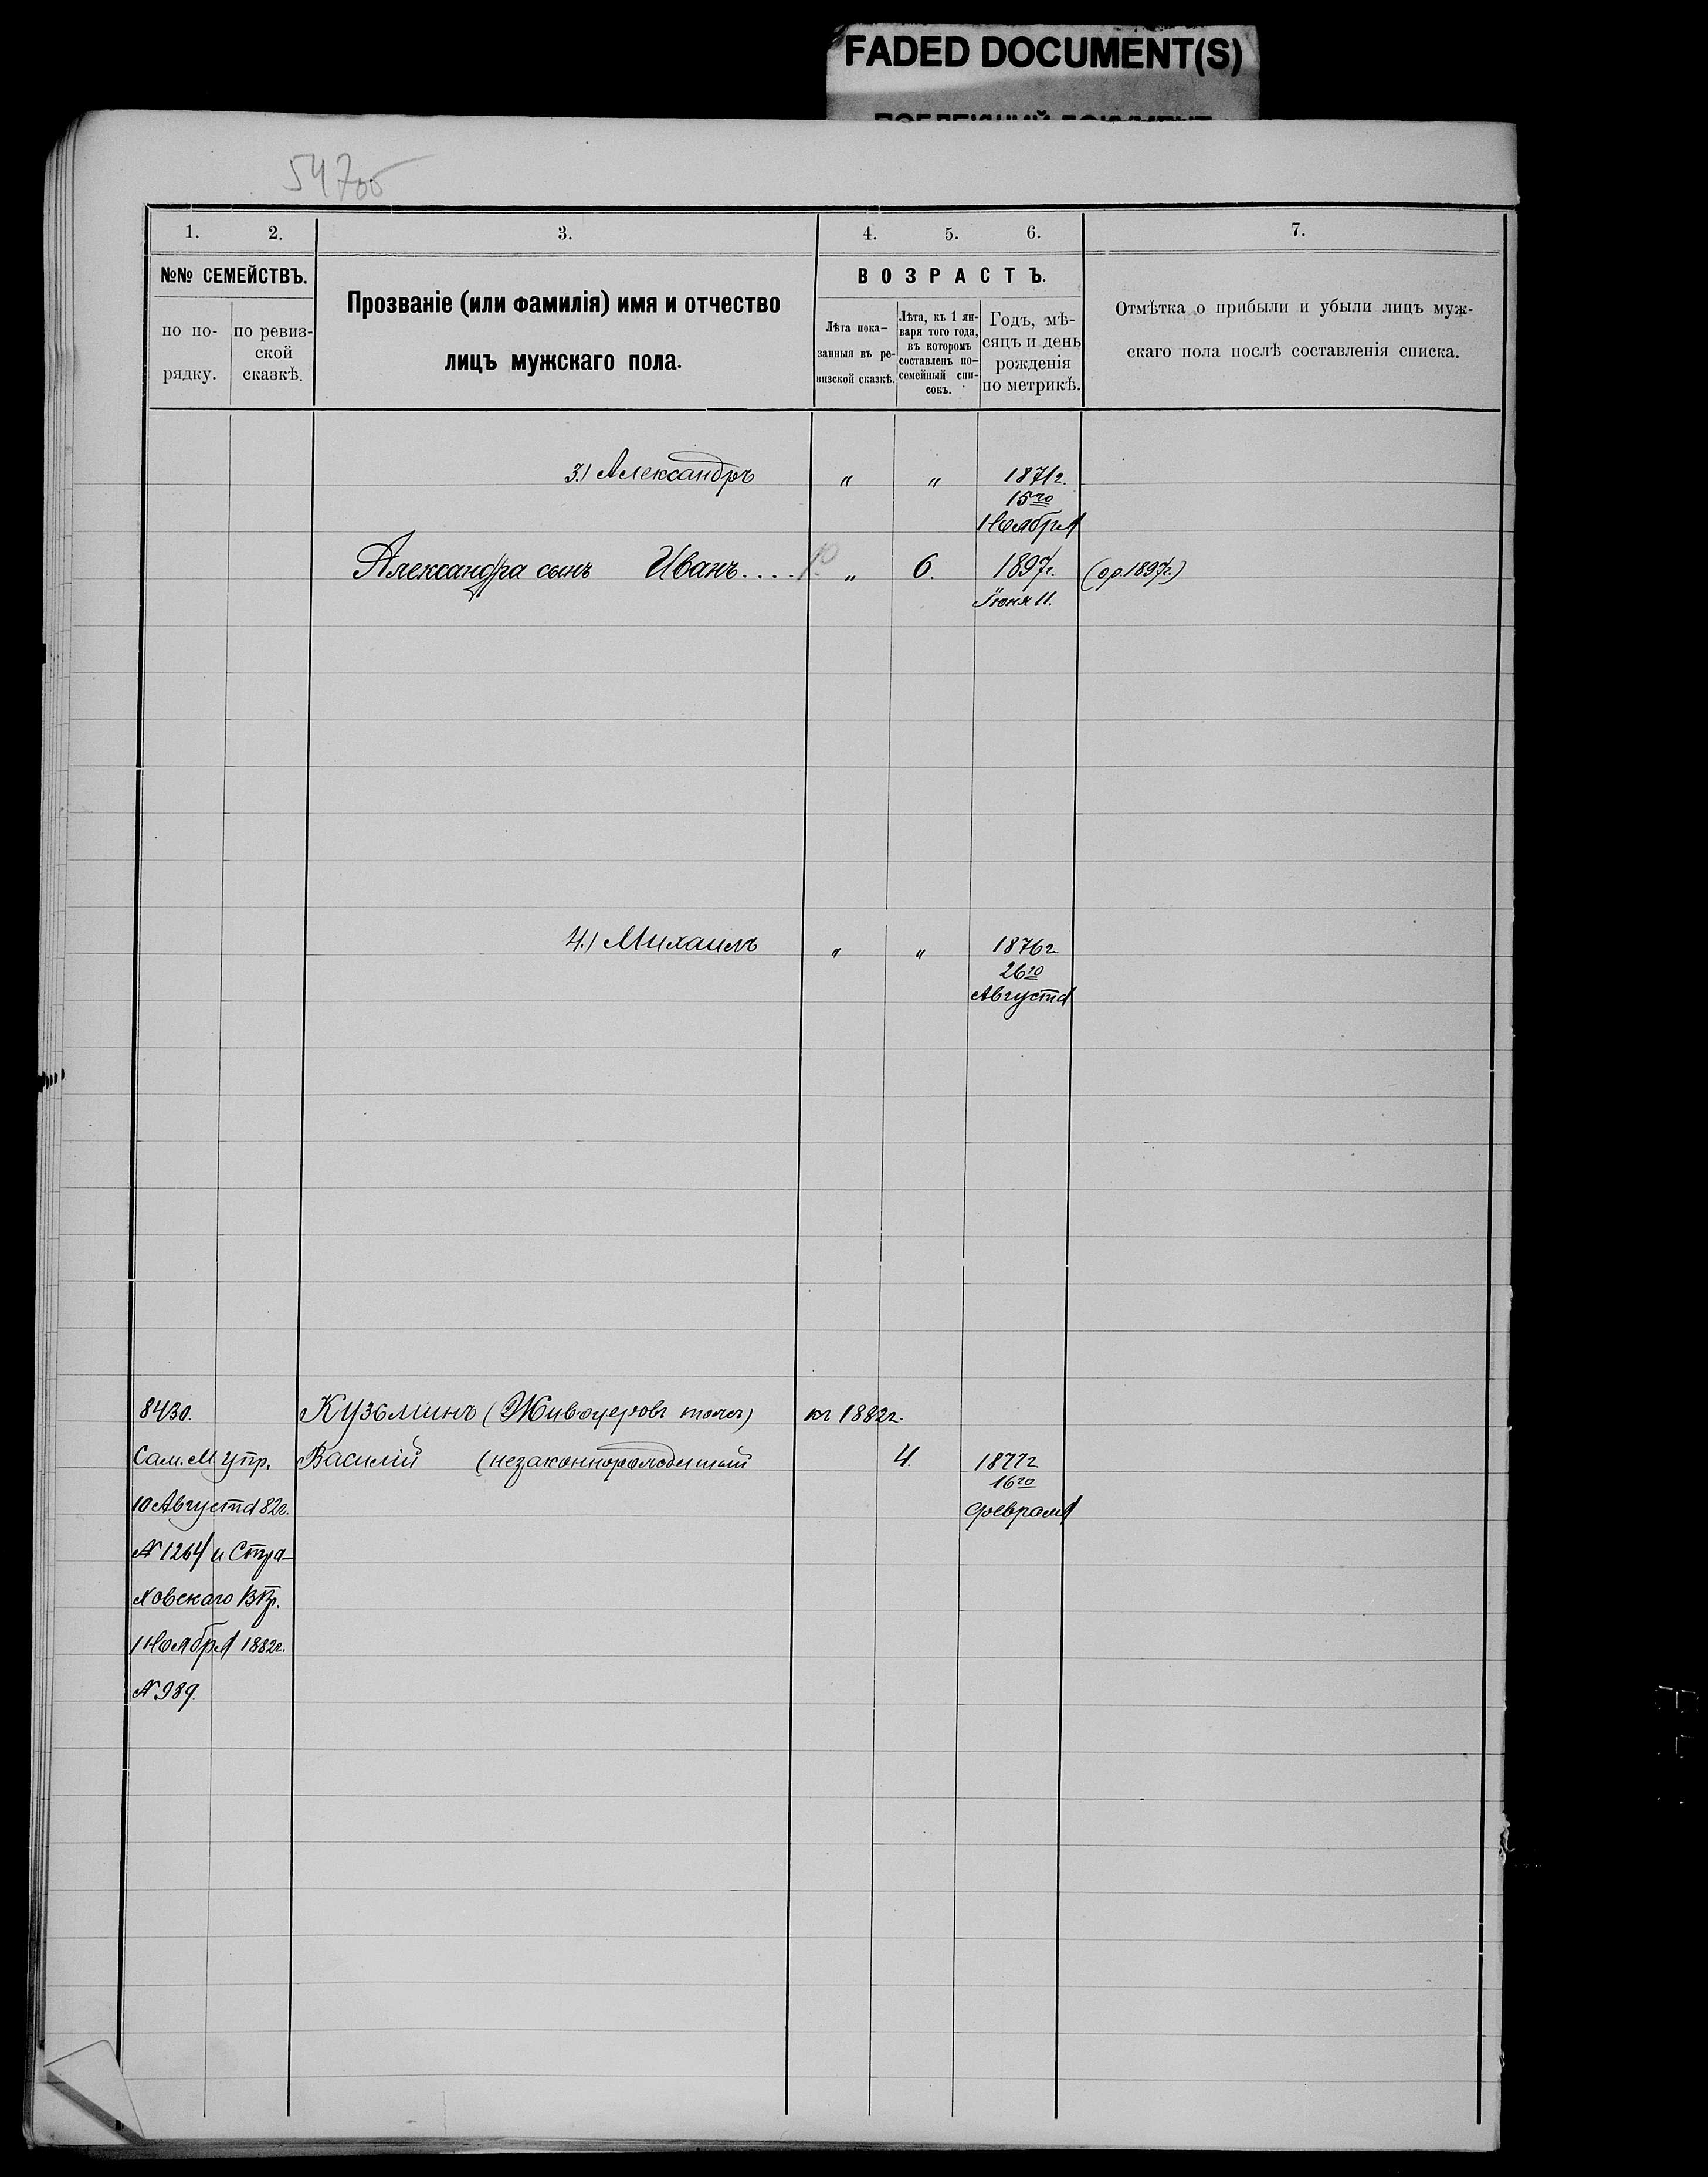 FADED DOCUMENT(S)
547об
1. 2. 3. 4. 5. 6. 7.
№№ СЕМЕЙСТВЪ.
по по-
рядку.
по ревиз-
ской
сказкѣ.
Прозваніе (или фамилія) имя и отчество
лицъ мужскаго пола.
ВОЗРАСТЪ.
Лѣта пока-
занныя въ ре-
визской сказкѣ.
Лѣта, къ 1 ян-
варя того года,
въ которомъ
составленъ по-
семейный спи-
сокъ.
Годъ, мѣ-
сяцъ и день
рожденія
по метрикѣ.
Отмѣтка о прибыли и убыли лицъ муж-
скаго пола послѣ составленія списка.
3.) Александръ " " 1871г.
15го
Ноября
Александра сынъ Иванъ.... " 6. 1897г. (р.1897г.)
Іюня 11.
4.) Михаилъ " " 1876г
26го
Августа
8430. Кузьминъ ( тожъ) къ 1882г.
Сам. М. Упр. Василій (незаконнорожденный 4. 1877г
16го
Февраля
10 Августа 82г.
№ 1264 и Стра-
ховскаго В Пр.
1 Ноября 1882г.
№ 989.